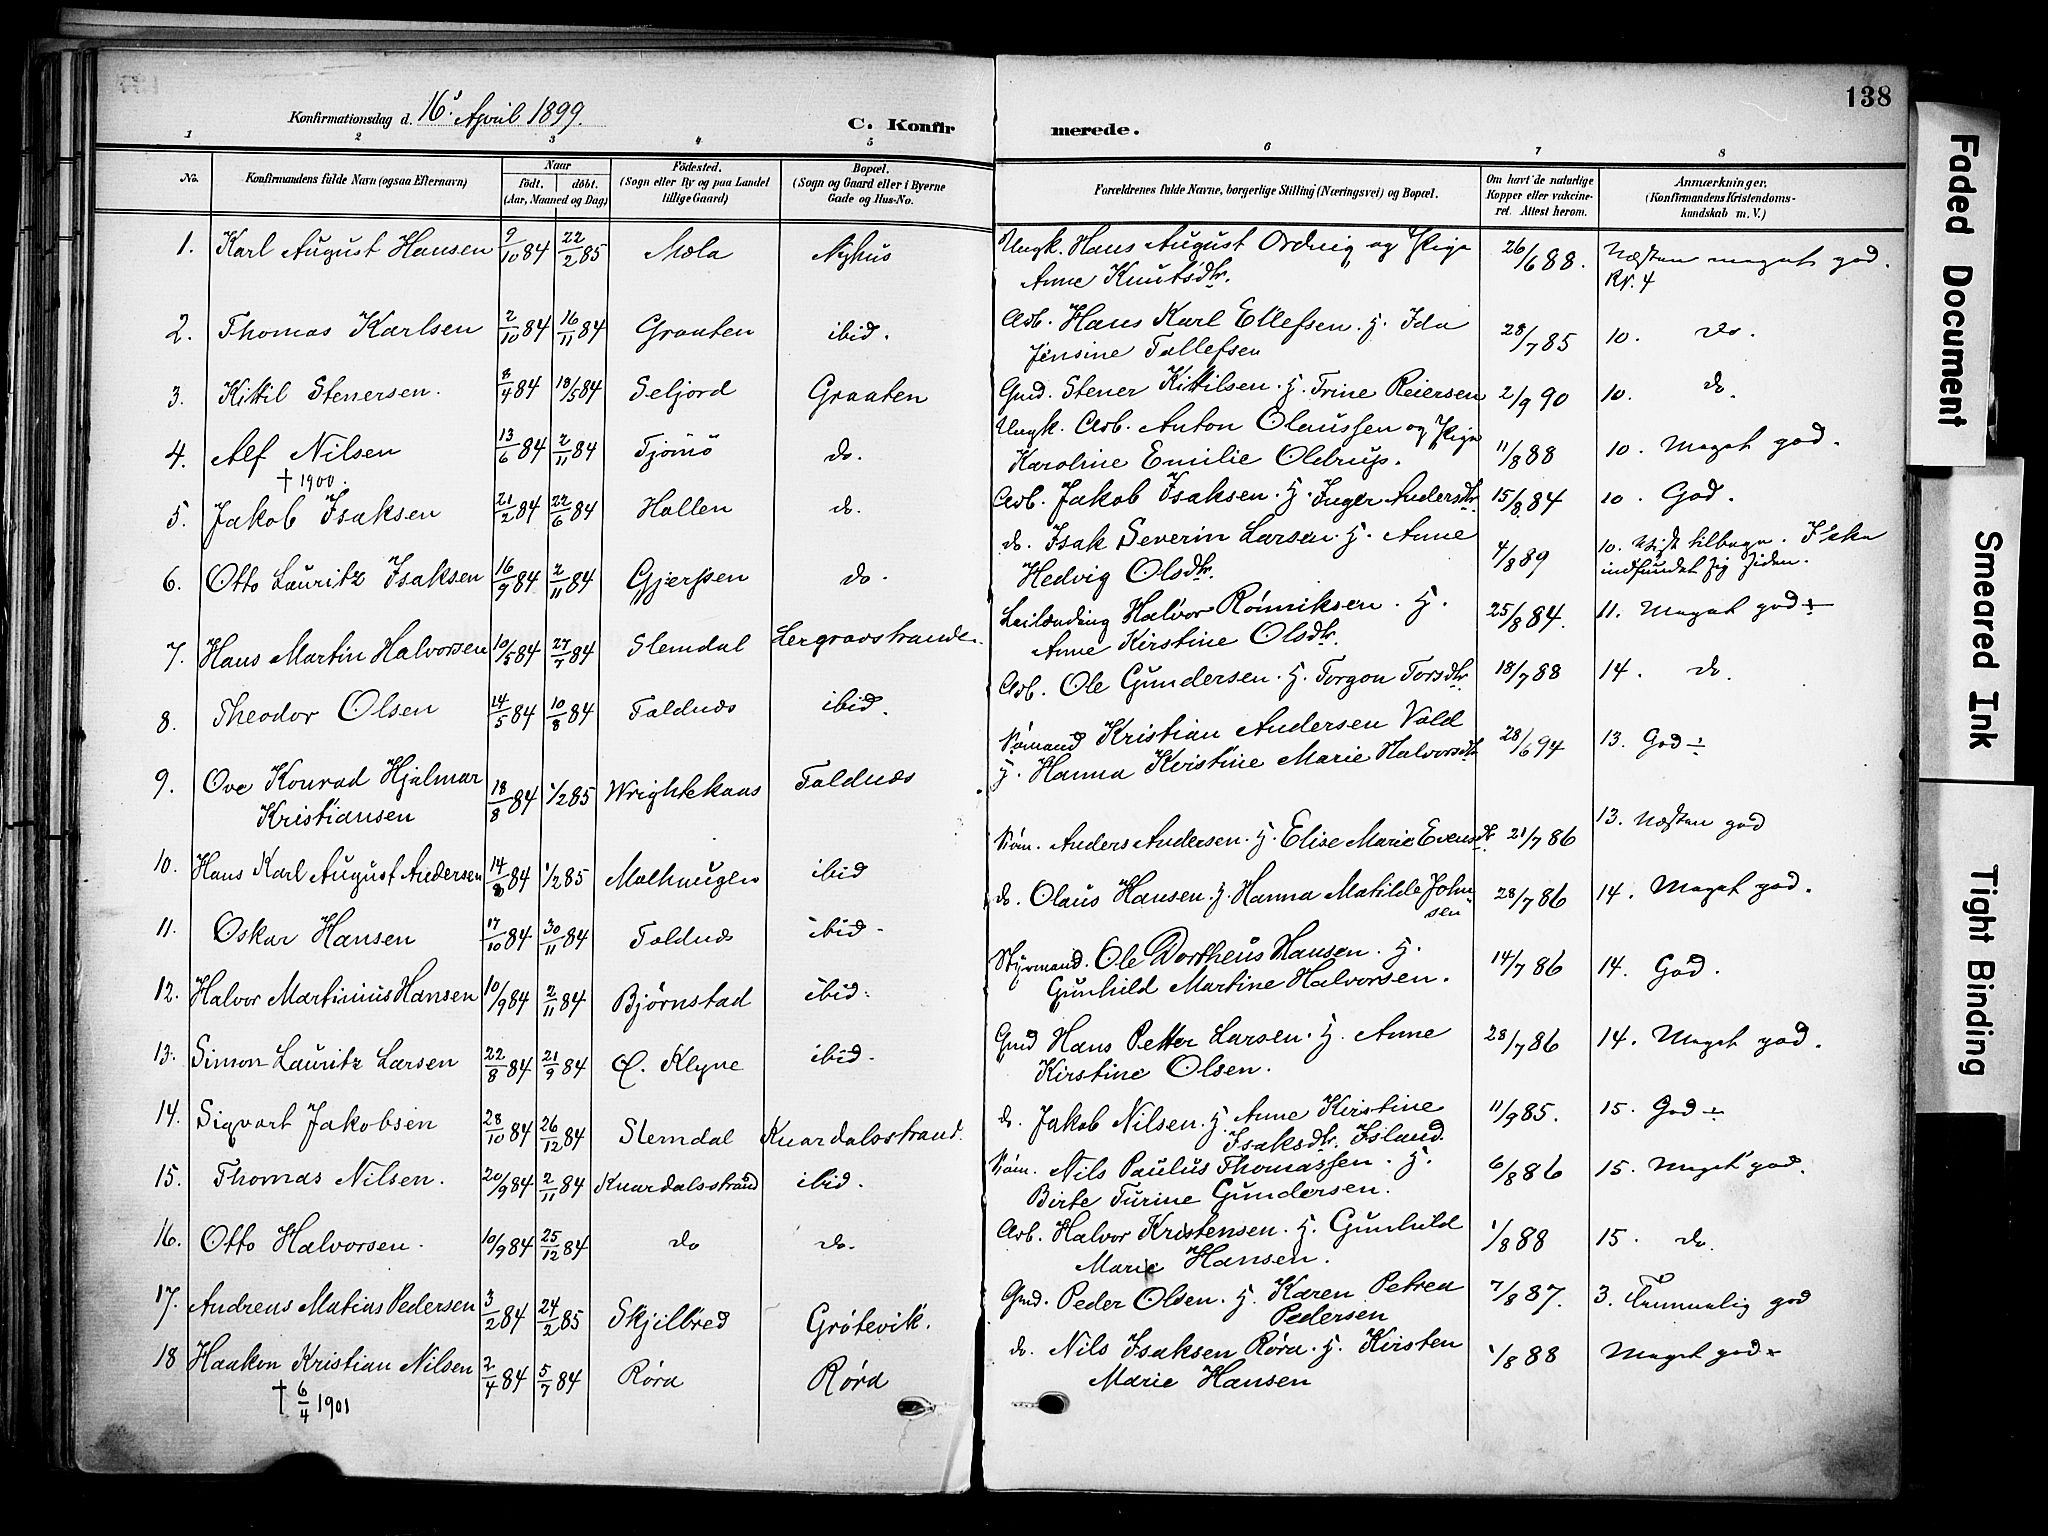 138
Konfirmationsdag d. 16de April 1899. C. Konfirmerede.
1 2 3 4 5 6 7 8
No. Konfirmandens fulde Navn (ogsaa Efternavn) Naar født. døbt. (Aar, Maaned og Dag) Fødested. (Sogn eller By og paa Landet tillige Gaard) Bopæl. (Sogn og Gaard eller i Byerne Gade og Hus-No. Forældrenes fulde Navne, borgerlige Stilling (Næringsvei) og Bopæl. Om havt de naturlige Kopper eller vakcineret. Attest herom. Anmærkninger. (Konfirmandens Kristendomskundskab m. V.)
1. Karl August Hansen 9/10 84 22/2 85 Mæla Nyhus Ungk. Hans August Ordnig og Pige 26/6 88. Næsten meget god.
Anne Knutsdtr. Kv. 4
2. Thomas Karlsen 2/10 84 16/11 84 Graaten ibid. Arb. Hans Karl Ellefsen. H. Ida 28/7 85 10. do.
Jensine Tollefsen
3. Kittil Stenersen. 8/4 84 18/5 84 Seljord Graaten Gmd. Stener Kittilsen. H. Trine Reiersen 2/9 90 10. do.
4. Alf Nilsen 13/6 84 2/11 84 Tjømø do. Ungk. Arb. Anton Olaussen og Pige 11/8 88 10. Meget god.
† 1900. Karoline Emilie Oldrup.
5. Jakob Isaksen 21/2 84 22/6 84 Hollen do. Arb. Jakob Isaksen. H. Inger Andersdtr. 15/8 84 10. God.
6. Otto Lauritz Isaksen 16/9 84 2/11 84 Gjerpen do. do. Isak Severin Larsen. H. Anne 4/8 89 10. Vist tilbage. Ikke
Hedvig Olsdtr. indfundet sig siden.
7. Hans Martin Halvorsen 10/5 84 27/7 84 Slemdal Lergravstranden Leilænding Halvor Rønniksen. H. 25/8 84. 11. Meget god÷
Anne Kirstine Olsdtr.
8. Theodor Olsen 14/5 84 10/8 84 Foldnæs ibid. Arb. Ole Gundersen. H. Torgon Torsdtr. 18/7 88 14. do.
9. Ove Konrad Hjalmar 18/8 84 1/2 85 Wrightekaas Foldnæs Sømand Kristian Andersen Vold 28/6 94 13. God÷
Kristiansen H. Hanna Kristine Marie Halvorsdtr.
10. Hans Karl August Andersen 14/8 84 1/2 85 Molhaugen ibid Søm. Anders Andersen. H. Elise Marie Evensdtr. 21/7 86 13. Næsten god
11. Oskar Hansen 17/10 84 30/11 84 Foldnæs ibid. do. Olaus Hansen. H. Hanna Matilde Johnsen 28/7 86 14. Meget god.
12. Halvor Martinius Hansen 10/9 84 2/11 84 Bjørnstad ibid. Styrmand. Ole Dortheus Hansen. H. 14/7 86 14. God.
Gunhild Martine Halvorsen.
13. Simon Lauritz Larsen 22/8 84 21/9 84 Ø. Klyve ibid. Gmd Hans Petter Larsen. H. Anne 28/7 86 14. Meget god.
Kirstine Olsen.
14. Sigvart Jakobsen 28/10 84 26/12 84 Slemdal Knardalsstrand. do. Jakob Nilsen. H. Anne Kirstine 11/9 85. 15. God÷
Isaksdtr. Island.
15. Thomas Nilsen. 20/9 84 2/11 84 Knardalsstrand ibid. Søm. Nils Paulus Thomassen. H. 6/8 86 15. Meget god.
Birte Turine Gundersen.
16. Otto Halvorsen. 10/9 84 25/12 84 do do. Arb. Halvor Kristensen. H. Gunhild 1/8 88 15. do.
Marie Hansen.
17. Andreas Matias Pedersen 3/2 84 24/2 85 Skjilbred Grøtevik. Gmd. Peder Olsen. H. Karen Petrea 7/8 87. 3. Temmelig god
Pedersen
18 Haakon Kristian Nilsen 2/4 84 5/7 84 Rørd Rørd do. Nils Isaksen Rørd. H. Kirsten 1/8 88 Meget god÷
† 6/4 1901 Marie Hansen
Faded Document
Smeared Ink
Tight Binding